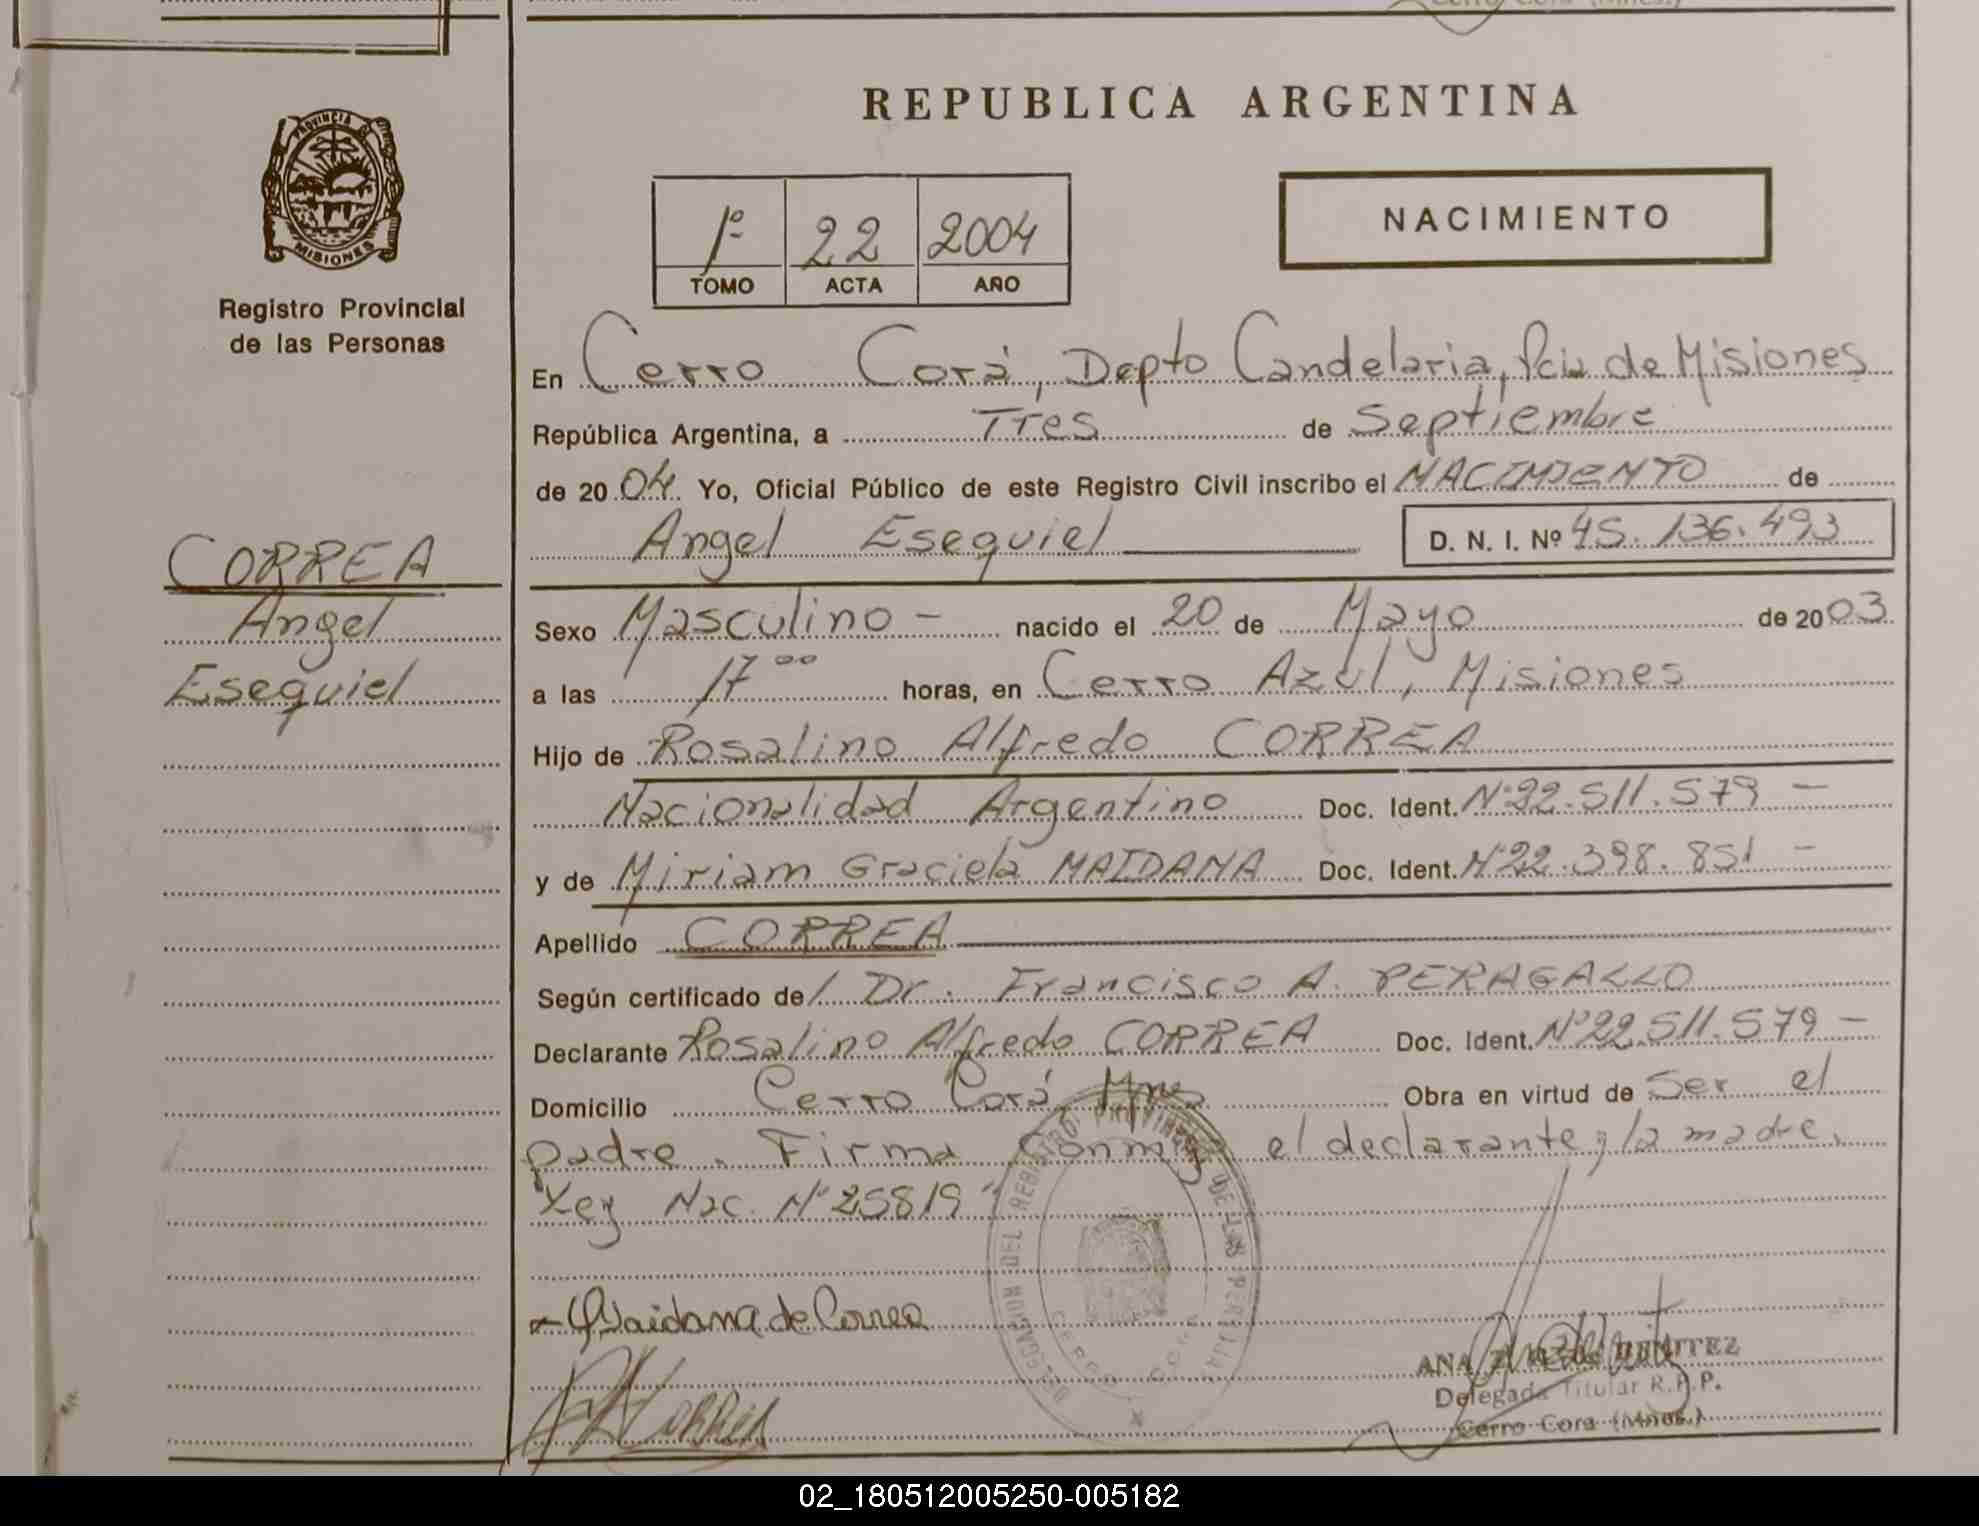 REPUBLICA ARGENTINA
PROVINCIA DE
MISIONES
Registro Provincial
de las Personas
1º 22 2004
TOMO ACTA AÑO
NACIMIENTO
En Cerro Corá, Depto Candelaria, Pcia de Misiones
República Argentina, a Tres de Septiembre
de 2004 Yo, Oficial Público de este Registro Civil inscribo el NACIMIENTO de
Angel Esequiel D. N. I. Nº 45.136.493
CORREA
Angel
Esequiel
Sexo Masculino - nacido el 20 de Mayo de 2003
a las 17 00 horas, en Cerro Azul, Misiones
Hijo de Rosalino Alfredo CORREA
Nacionalidad Argentino Doc. Ident. Nº 22.511.579 -
y de Miriam Graciela MAIDANA Doc. Ident. Nº 22.398.851 -
Apellido CORREA
Según certificado de / Dr. Francisco A. PERAGALLO
Declarante Rosalino Alfredo CORREA Doc. Ident. Nº 22.511.579 -
Domicilio Cerro Corá, Mnes Obra en virtud de Ser el
padre. Firma Conmigo el declarante y la madre.
"Ley Nac. Nº 25819"
DELEGACION DEL REGISTRO PROVINCIAL DE LAS PERSONAS
CERRO CORA
Maidana de Correa
Correa
ANA
Delegada Titular R.P.P.
Cerro Cora (Mnes.)
02_180512005250-005182